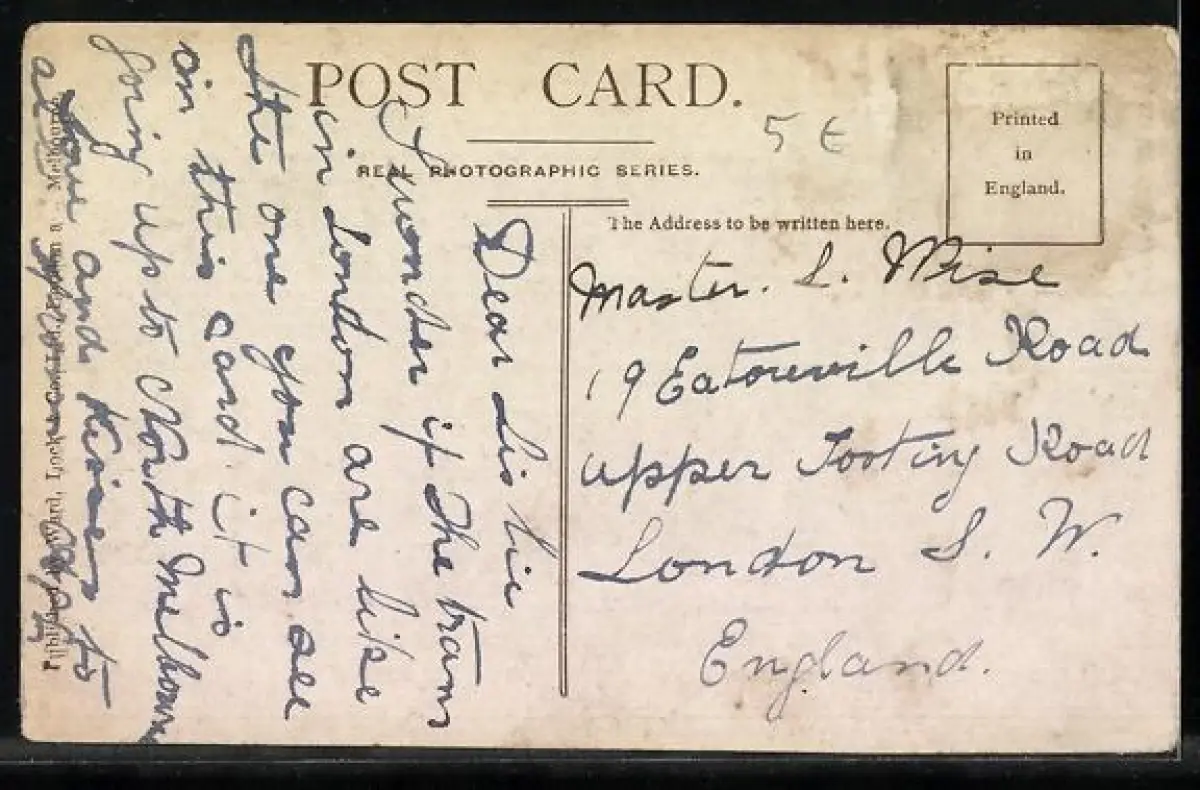 POST CARD.
REAL PHOTOGRAPHIC SERIES.
5 €
Printed
in
England.
The Address to be written here.
Master. L. Wise
19 Eatonville Road
upper Tooting Road
London S. W.
England.
Dear Lislie
I wonder if the tram
in London are like
the one you can see
on this card. it is
going up to North Melbourne
love and kisses to
all
Ward, Lock & Co. Melbourne.